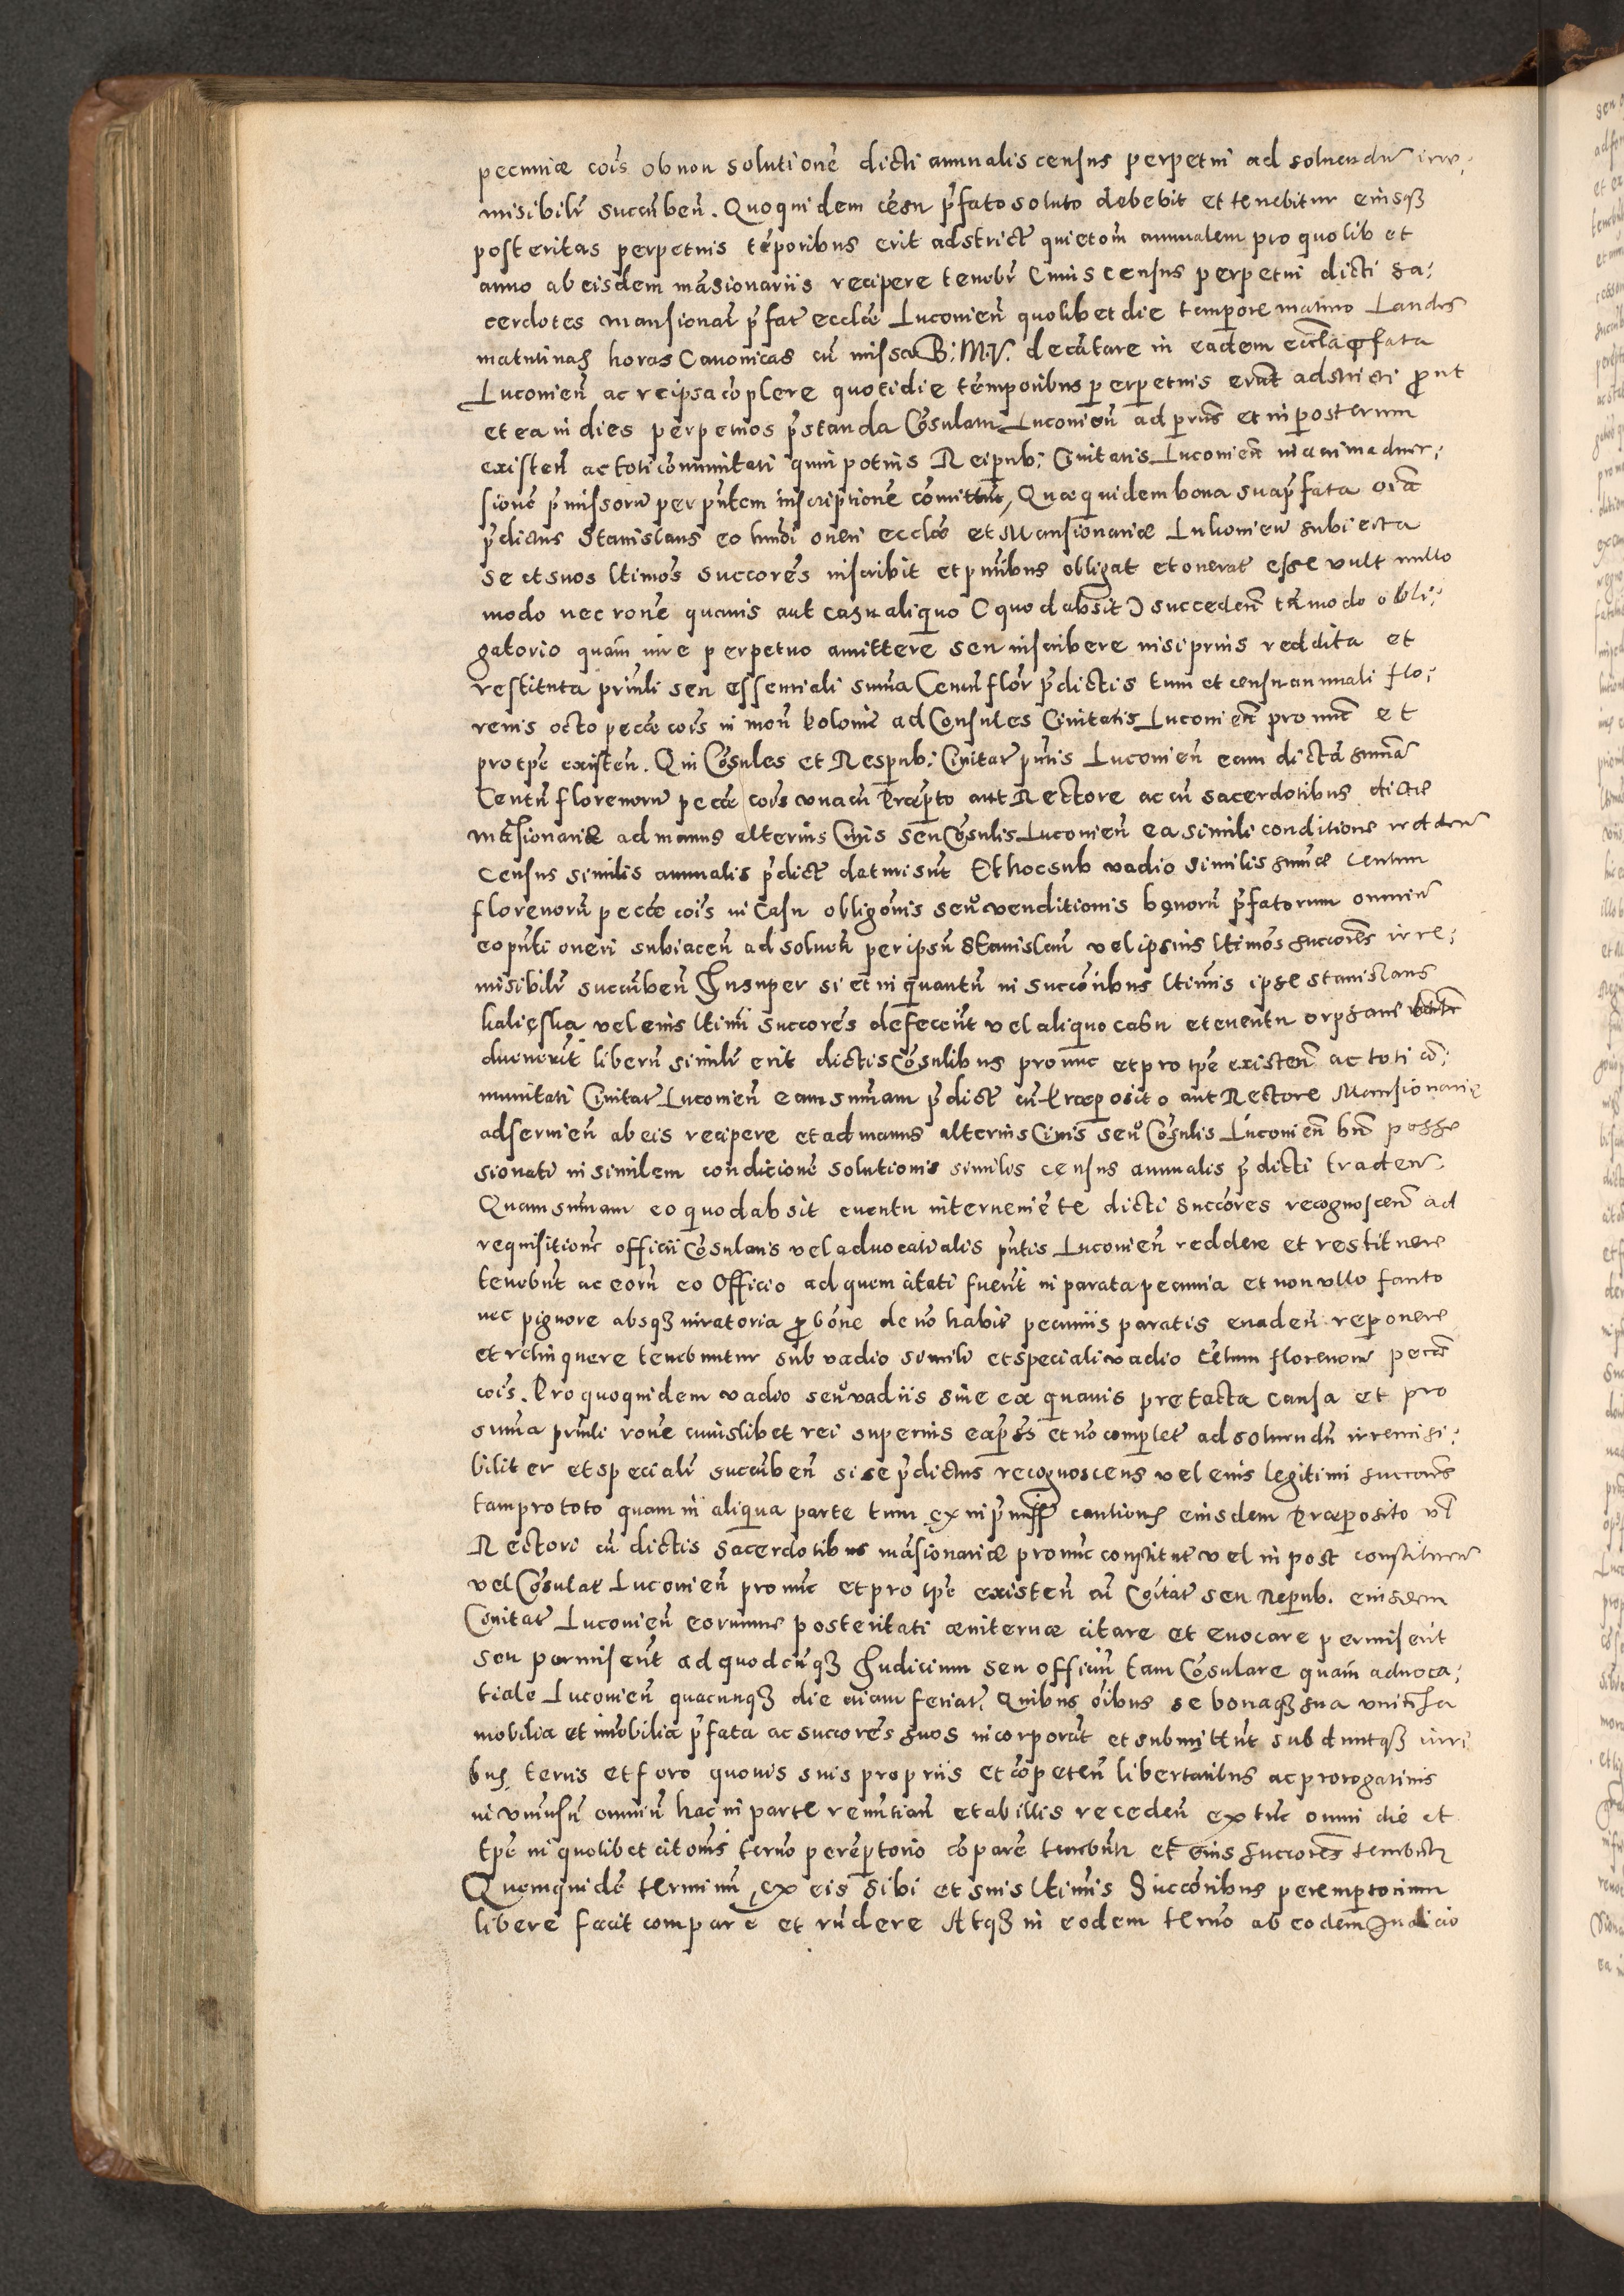 pecuniæ cois ob non solutionē dicti annualis census perpetui ad soluendū irre;
misibilr̄ sucūbeñ. Quoquidem cēsu p̄fato soluto debebit et tenebitur eiusqȝ
posteritas perpetuis tēporibus erit adstrict̄ quietom̄ annualem pro quolibet
anno ab eisdem māsionariis recipere tenebr̄ Cuius census perpetui dicti sa;
cerdotes mansionar̄ p̄fat̄ eccl̄æ Luconieñ quolibet die tempore matino Laudes
matutinas horas Canonicas cū missa B: M. V. decātare in eadem eccl̄a p̄fata
Luconieñ ac reipsa cōplere quotidie tēmporibus perpetuis erūt adstricti prout
et ea in dies perpetuos p̄standa Cōsulatui Luconieñ ad p̄n̄s et in posterum
existeñ ac toti cōmunitati quin potius Reipub: Ciuitatis Luconieñ in animaduer;
sionē p̄missorū per pn̄tem inscriptionē cōmittūt, Quæquidem bona sua p̄fata oīa
p̄dictus Stanislaus eo hm̄di oneri eccl̄æ et Mansionariæ Lukonieñ subiecta
se et suos ltimos succores inscribit et pn̄tibus obligat et onerat esse vult nullo
modo nec rone quauis aut casu aliquo (quod absit) succedeñ tā modo obli;
gatorio quam iure perpetuo amittere seu inscribere nisi prius reddita et
restituta prin̄li seu essentiali sum̄a Centū flor̄ p̄dictis tum et censu annuali flo;
renis octo peccæ cois in mon̄ Polonic̄ ad Consules Ciuitatis Luconieñ pro nunc et
pro tpē existeñ. Qui Cōsules et Respub: Ciuitat̄ pn̄tis Luconieñ eam dictā sum̄ā
Centū florenorū pecæ cois vna cū Præpto aut Rectore ac cū sacerdotibus dictæ
māsionariæ ad manus alterius Ciuis seu Cōsulis Luconieñ ea simili conditione reddeñ
census similis annualis p̄dict̄ daturi sūt Et hoc sub vadio similis sum̄æ centum
florenorū peccæ cois in Casu obligōnis seu venditionis bonorū p̄fatorum omniū
eo pn̄ti oneri subiaceñ ad soluen̄ per ipsū Stanislaū vel ipsius ltimos succores irre;
misibilr̄ sucūbeñ Insuper si et in quantū in succōribus ltimis ipse Stanislaus
kalięska vel eius ltimi succores defecerīt vel aliquo casu et euentu orphani
duenerīt liberū similr̄ erit dictis Cōsulibus pro nunc et pro tpē existeñ ac toti cō;
munitati Ciuitat̄ Luconieñ eam sum̄am p̄dict̄ cū Præposito aut Rectore Mansionarię
adseruieñ ab eis recipere et ad manus alterius Ciuis seu Cōsulis Luconieñ bn̄ posse
sionati in similem conditionē solutionis similis census annualis p̄dicti tradeñ.
Quam sum̄am eo quod absit euentu interueniēte dicti succores recognosceñ ad
requisitionē officii Cōsularis vel aduocatialis pn̄tis Luconieñ reddere et restituere
tenebūt ac eorū eo Officio ad quem citati fuerīt in parata pecunia et non vllo fanto
nec pignore absqȝ iuratoria ꝓbōne de nō habit̄ pecuniis paratis euadeñ reponere
et relinquere tenebuntur sub vadio simili et speciali vadio cētum florenorū peccæ
cois. Pro quoquidem vadio seu vadiis siue ex quauis pretacta causa et pro
sum̄a prin̄li rone cuiuslibet rei superius exp̄ss et nō complet̄ ad soluendū irremisi;
biliter et specialr̄ sucūbeñ si se p̄dictus recognoscens vel eius legitimi succores
tam pro toto quam in aliqua parte tum ex in p̄miss cautione eiusdem Præposito vl
Rectori cū dictis sacerdotibus māsionariæ pro nunc constitut̄ vel in post constitueñ
vel Cōsulat̄ Luconieñ pro nunc et pro tpē existeñ aū Ciuitat̄ seu Reipub. eiusdem
Ciuitat̄ Luconieñ eorumue posteritati æuiternæ citare et euocare permiserīt
seu permiserīt ad quodcūqȝ Iudicium seu officiū tam Cōsulare quam aduoca;
tiale Luconieñ quacunqȝ die etiam feriat̄. Quibus oībus se bonaqȝ sua vniūsa
mobilia et im̄obilia p̄fata ac succores suos incorporāt et submittūt subduntqȝ iuri
bus, terris et foro quouis suis propriis et cōpeteñ libertatibus ac prorogatiuis
in vniūsū omniū hac in parte renūtiañ et ab illis recedeñ ex tūc omni die et
tpē in quolibet citōnis termo perēptorio cōpare tenebūtr et eius succores tenebūtr
Quemquidē terminū, ex eis sibi et suis ltimis Succōribus peremptorium
libere fœcit comparē et rūdere Atqȝ in eodem termo ab eodem Iudicio